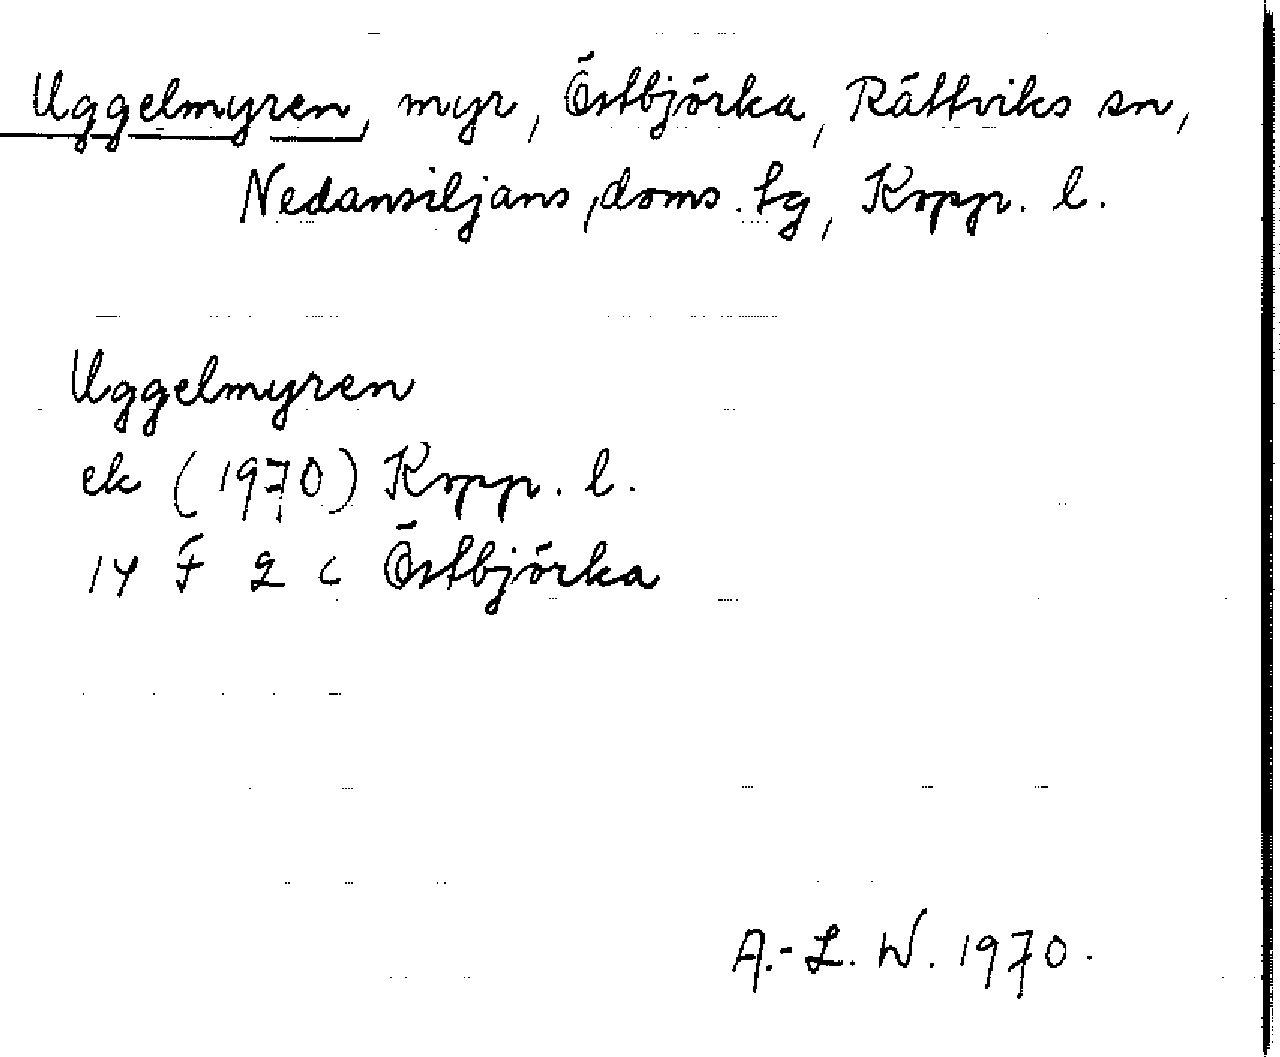 Uggelmyren, myr, Östbjörka, Rättviks sn,
Nedansiljans doms. tg, Kopp. l.
Uggelmyren
ek (1970) Kopp. l.
14 F 2 c Östbjörka
A.-L. W. 1970.